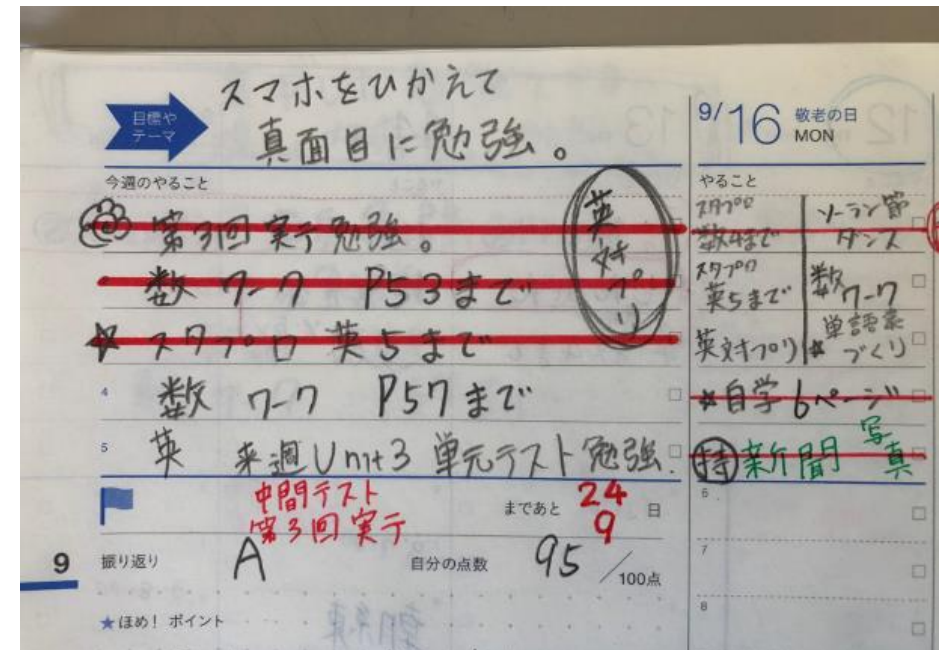 目標や
テーマ
スマホをひかえて
真面目に勉強。
今週のやること
第3回実テ勉強。
数 ワーク P53まで
スタプロ 英5まで
英対プリ
4 数 ワーク P57まで
5 英 来週Unit3 単元テスト勉強.
中間テスト
第3回実テ
まであと 24 日
9
9
振り返り A
自分の点数 95 / 100点
★ほめ! ポイント
9/16 敬老の日
MON
やること
スタプロ
数4まで
ソーラン節
ダンス
スタプロ
英5まで
数ワーク
英対プリ
単語帳
づくり
自学6ページ
持 新聞 写真
6
7
8